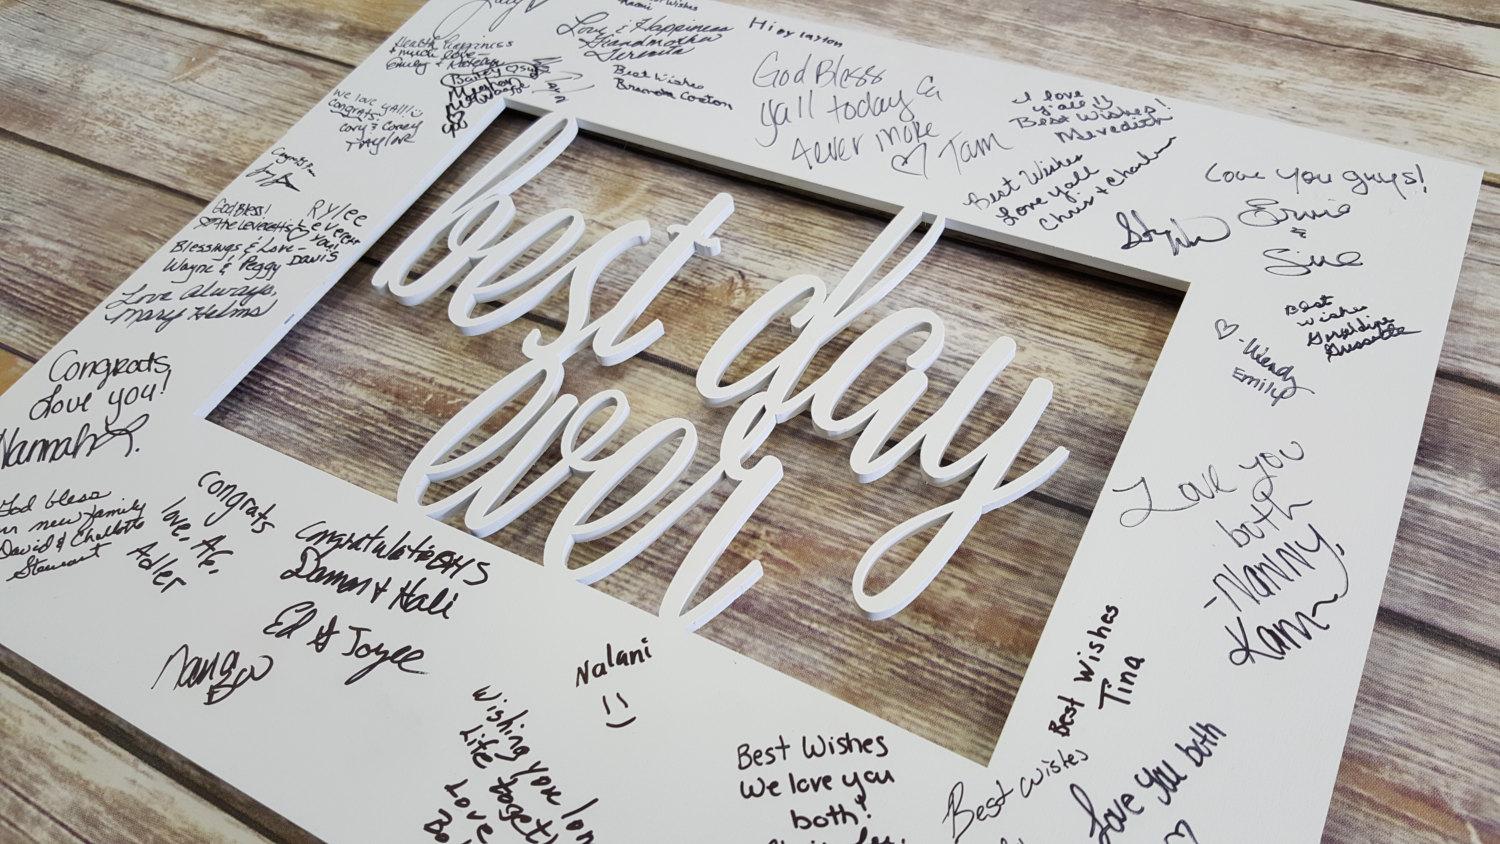 best day
ever
Best Wishes
Naomi
Love & Happiness
Grandmother
Best Wishes
Brenda Coston
Hi
Health, happiness
& much love -
Emily &
We love y'all! :)
Congrats.
Cory & Corey
Taylor
God Bless
y'all today &
4ever more
♡ Tam
I love
y'all !!
Best Wishes!
Meredith
Best Wishes
Love y'all
Chris +
Love you guys!
Ernie
&
Sue
Best
Wishes
Geraldine
♡ - Wendy
Emily
God Bless!
Rylee
Leverett
Blessings & Love -
Wayne & Peggy Davis
Love Always,
Mary Helms
Congrats,
Love you!
Hannah
God bless
new family
David & Charlotte
Stewart
Congrats
love, Af.
Adler
Congratulations
Damon & Hali
Ed & Joyce
Nana
Nalani
:)
Wishing you
Life
Love
Best Wishes
We love you
both!
Love you
both
- Nanny,
Best Wishes
Tina
Best wishes
Love you both